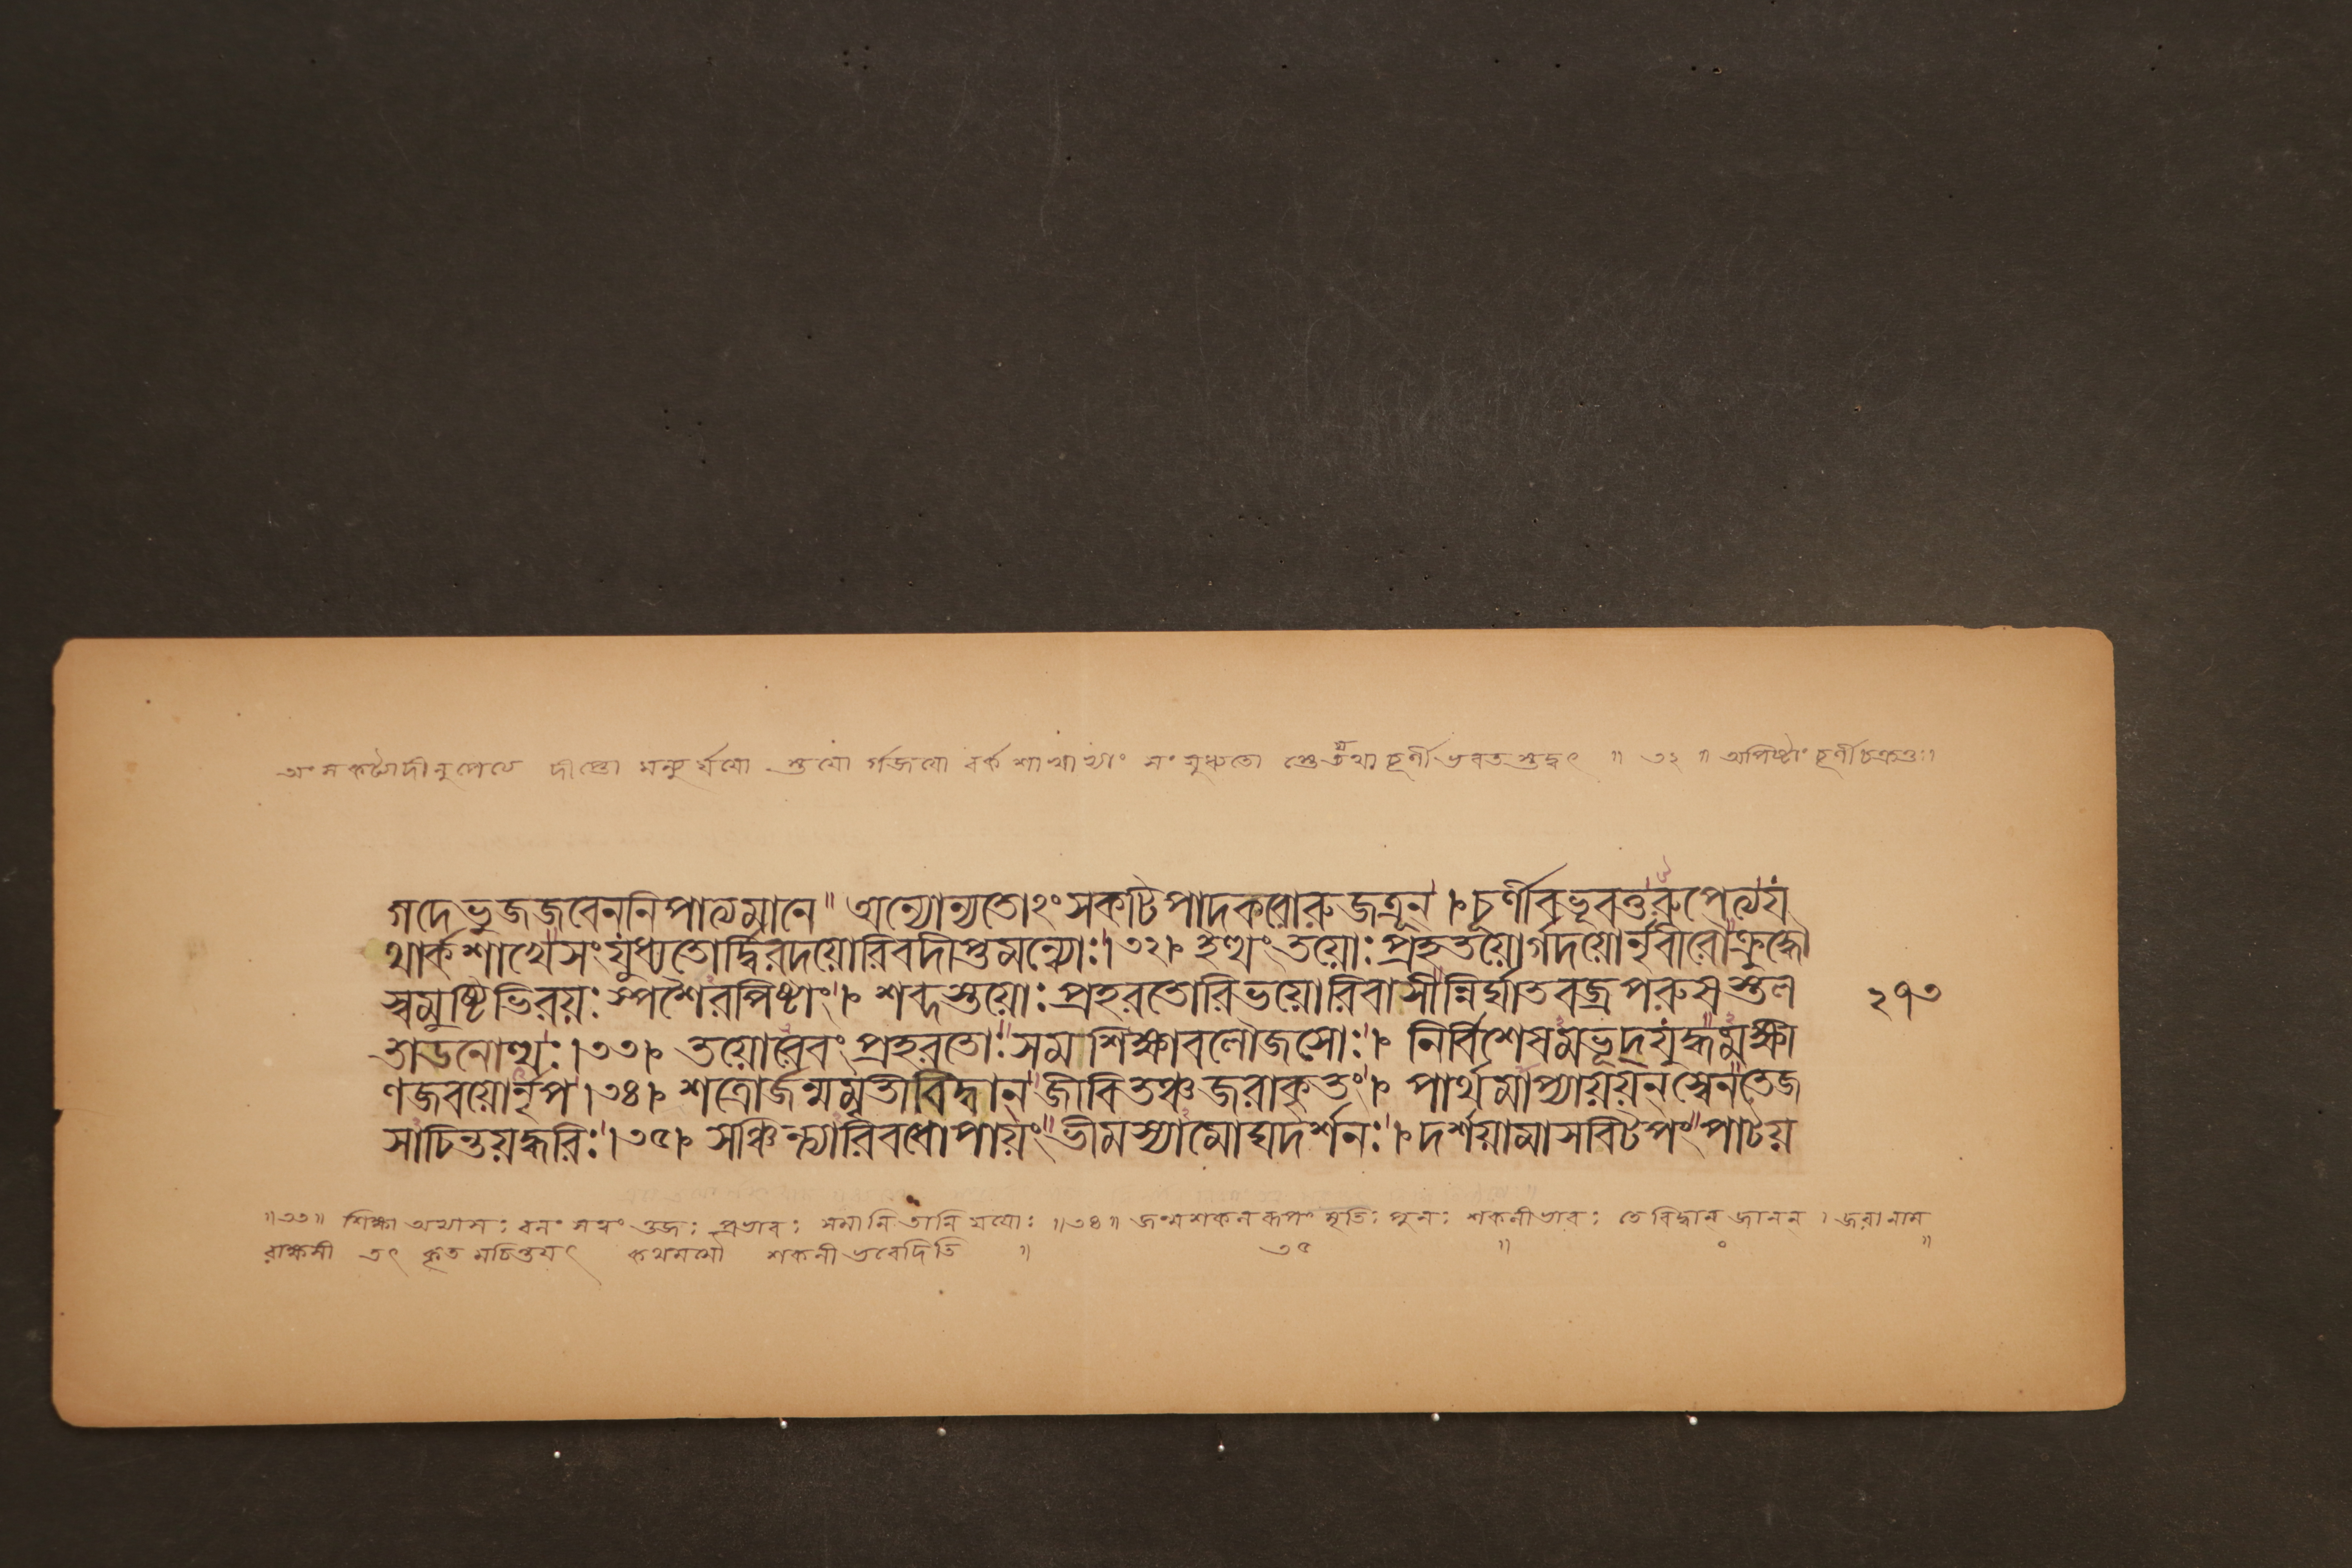 অংসকট্যাদীনুপেত্যে দীপ্তো মন্যুর্যযো স্তযো র্গজযো বর্ক শাখাযাং সংযুধ্যতো স্তে যথা চূর্ণীভবতস্তদ্বৎ ॥ ৩২ ॥ অপিষ্টাং চূর্ণীচক্রতুঃ।
গদেভুজজবেননিপাত্যমানে॥ অন্যোন্যতোংঽসকটিপাদকরোরুজত্রূন্ । চূর্ণীবভূবতুরুপেত্যয
থার্কশাখেসংযুধ্যতোর্দ্বিরদয়োরিবদীপ্তমন্যোঃ।৩২। ইত্থং তয়োঃ প্রহতয়োর্গদয়োর্নৃবীরৌক্রুদ্ধৌ
স্বমুষ্টিভিরয়ঃস্পর্শৈরপিষ্টাং । শব্দস্তয়োঃ প্রহরতোরিভয়োরিবাসীন্নির্ঘাতবজ্রপরুষস্তল ২১৩
তাডনোত্থঃ।৩৩। তয়োরেবং প্রহরতোঃ সমশিক্ষাবলৌজসোঃ। নির্বিশেষমভূদ্যুদ্ধমক্ষী
ণজবয়োর্নৃপ।৩৪। শত্রোর্জন্মমৃতীবিদ্বান্ জীবিতঞ্চজরাকৃতং। পার্থমাপ্যায়য়ন্ স্বেনতেজ
সাচিন্তয়দ্ধরিঃ।৩৫। সঞ্চিন্ত্যারিবধোপায়ং ভীমস্যামোঘদর্শনঃ। দর্শয়ামাসবিটপং পাটয়
॥৩৩॥ শিক্ষা অভ্যাসঃ বলং সত্বং ওজঃ প্রভাবঃ সমানি তানি যযোঃ ॥৩৪॥ জংমশকল রূপং মৃতিঃ পুনঃ শকলীভাবঃ তে বিদ্বান্ জানন্ । জরা নাম
রাক্ষসী তৎ কৃত মচিন্তয়ৎ কথমসৌ শকলী ভবেদিতি ॥ ৩৫ ॥